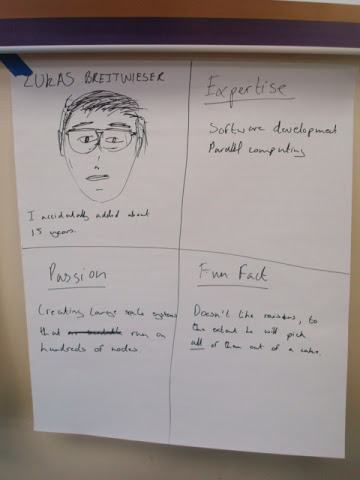 LUKAS BREITWIESER
I accidentally added about
15 years.
Expertise
Software development
Parallel computing
Passion
Creating large scale systems
that run on
hundreds of nodes.
Fun Fact
Doesn't like raisins, to
the extent he will pick
all of them out of a cake.